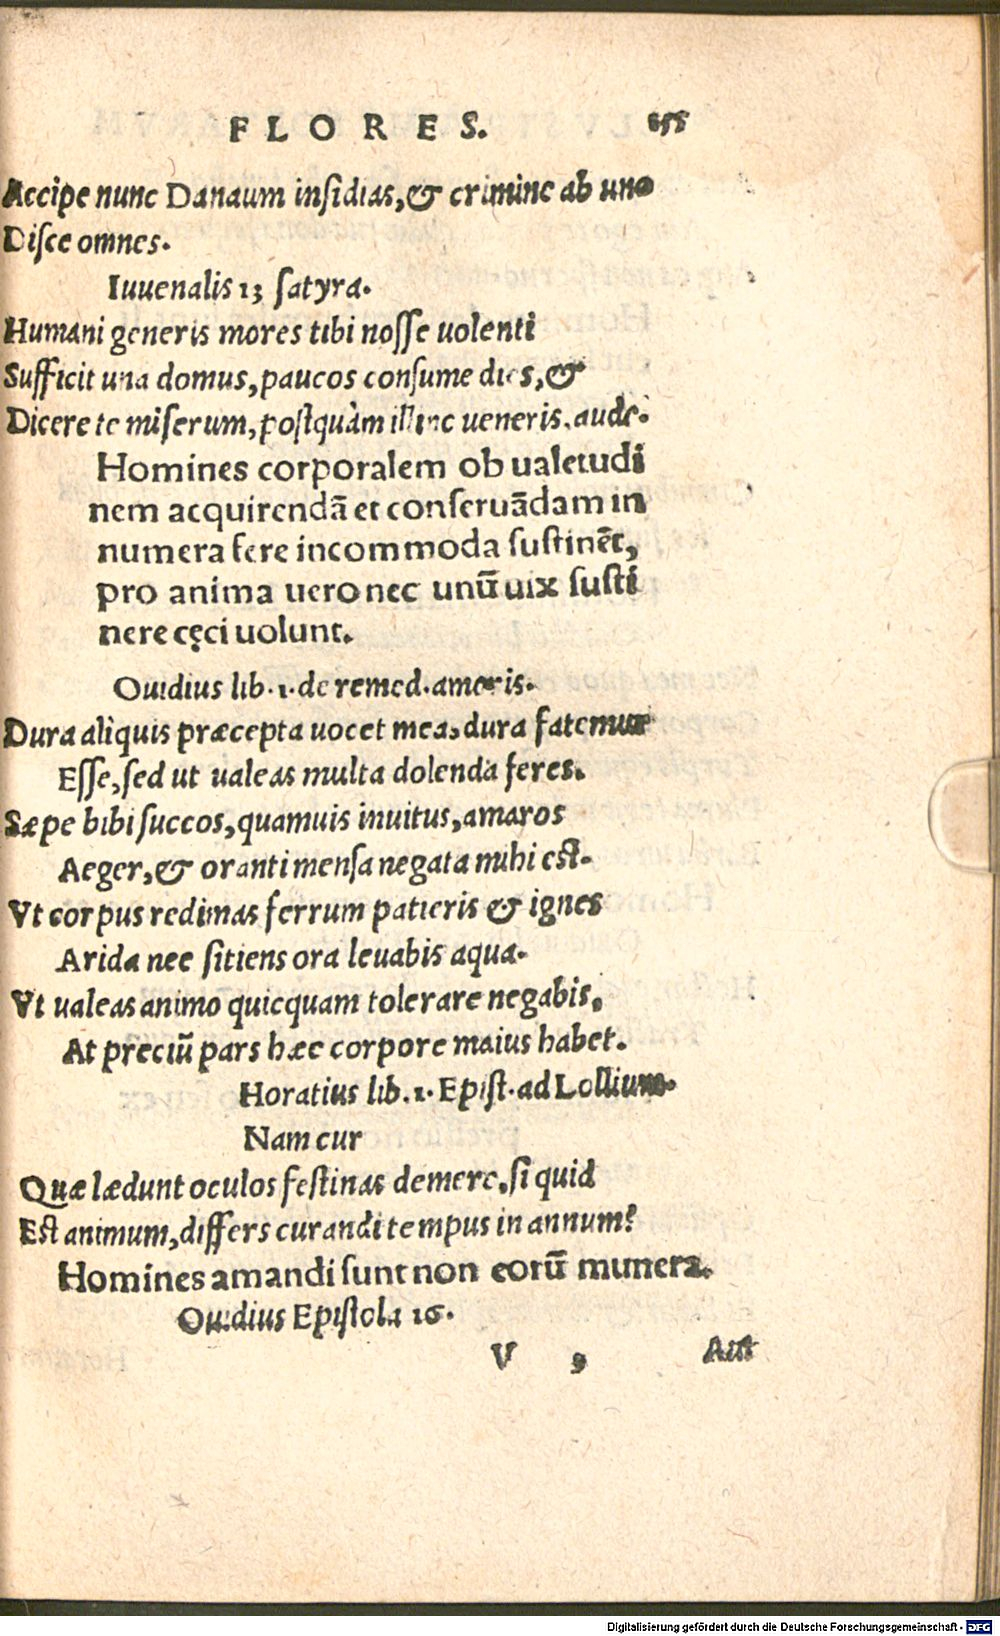 FLORES. 155
Accipe nunc Danaum insidias, & crimine ab uno
Disce omnes.
Iuuenalis 13 satyra.
Humani generis mores tibi nosse uolenti
Sufficit una domus, paucos consume dies, &
Dicere te miserum, postquàm illinc ueneris, aude.
Homines corporalem ob ualetudi
nem acquirendā et conseruādam in
numera fere incommoda sustinēt,
pro anima uero nec unū uix susti
nere cęci uolunt.
Ouidius lib. 1. de remed. amoris.
Dura aliquis præcepta uocet mea, dura fatemur
Esse, sed ut ualeas multa dolenda feres.
Sæpe bibi succos, quamuis inuitus, amaros
Aeger, & oranti mensa negata mihi est.
Vt corpus redimas ferrum patieris & ignes
Arida nec sitiens ora leuabis aqua.
Vt ualeas animo quicquam tolerare negabis,
At preciū pars hæc corpore maius habet.
Horatius lib. 1. Epist. ad Lollium.
Nam cur
Quæ lædunt oculos festinas demere, si quid
Est animum, differs curandi tempus in annum?
Homines amandi sunt non eorū munera.
Ouidius Epistola 16.
V 9 Aut
Digitalisierung gefördert durch die Deutsche Forschungsgemeinschaft - DFG